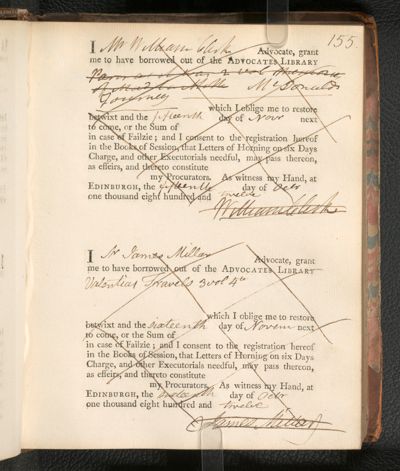 155.
I Mr William Clerk Advocate, grant
me to have borrowed out of the ADVOCATES LIBRARY
McDonalds
Journey
which I oblige me to restore
betwixt and the fifteenth day of Novr next
to come, or the Sum of
in case of Failzie; and I consent to the registration hereof
in the Books of Session, that Letters of Horning on six Days
Charge, and other Executorials needful, may pass thereon,
as effeirs, and thereto constitute
my Procurators. As witness my Hand, at
EDINBURGH, the fifteenth day of Octr
one thousand eight hundred and twelve
William Clerk
I Mr James Millar Advocate, grant
me to have borrowed out of the ADVOCATES LIBRARY
Valentias Travels 3 vol 4to
which I oblige me to restore
betwixt and the sixteenth day of Novem next
to come, or the Sum of
in case of Failzie; and I consent to the registration hereof
in the Books of Session, that Letters of Horning on six Days
Charge, and other Executorials needful, may pass thereon,
as effeirs, and thereto constitute
my Procurators. As witness my Hand, at
EDINBURGH, the sixteenth day of Octr
one thousand eight hundred and twelve
James Millar